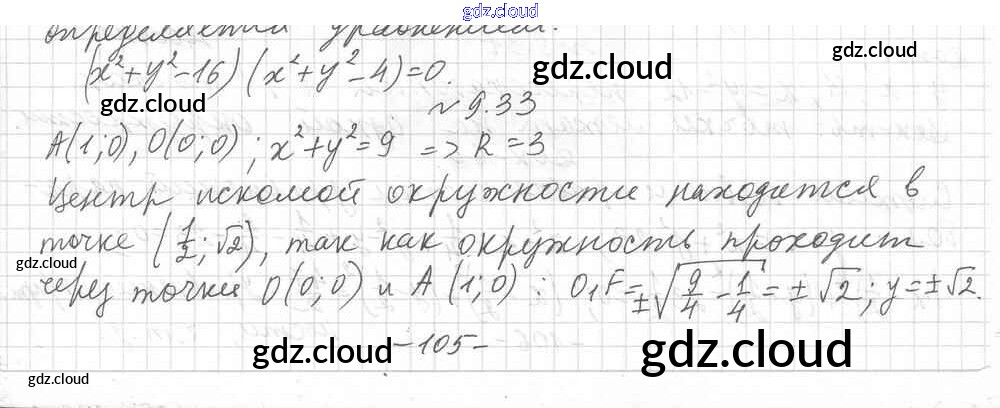 gdz.cloud
определяется уравнением:
(x²+y²-16)(x²+y²-4)=0.
gdz.cloud
gdz.cloud
gdz.cloud
№ 9.33
A(1;0), O(0;0); x²+y²=9 => R=3
gdz.cloud
Центр искомой окружности находится в
точке (1/2; √2), так как окружность проходит
gdz.cloud
через точки O(0;0) и A(1;0): O₁F=±√(9/4-1/4)=±√2; y=±√2.
-105-
gdz.cloud
gdz.cloud
gdz.cloud
gdz.cloud